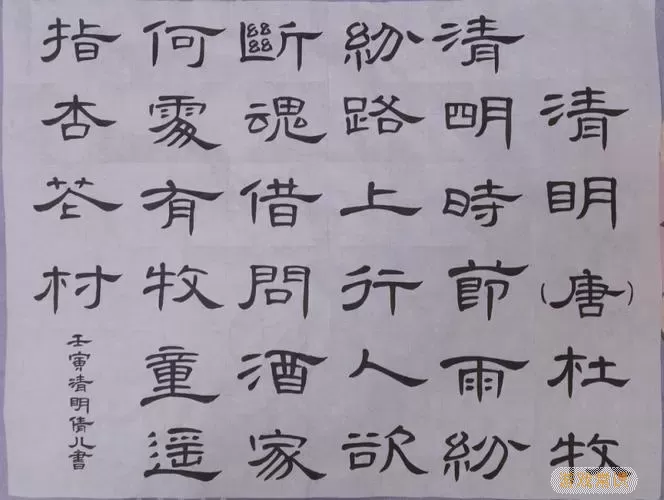 清明(唐)杜牧
清明時節雨紛
紛路上行人欲
斷魂借問酒家
何處有牧童遥
指杏花村
壬寅清明倩儿書